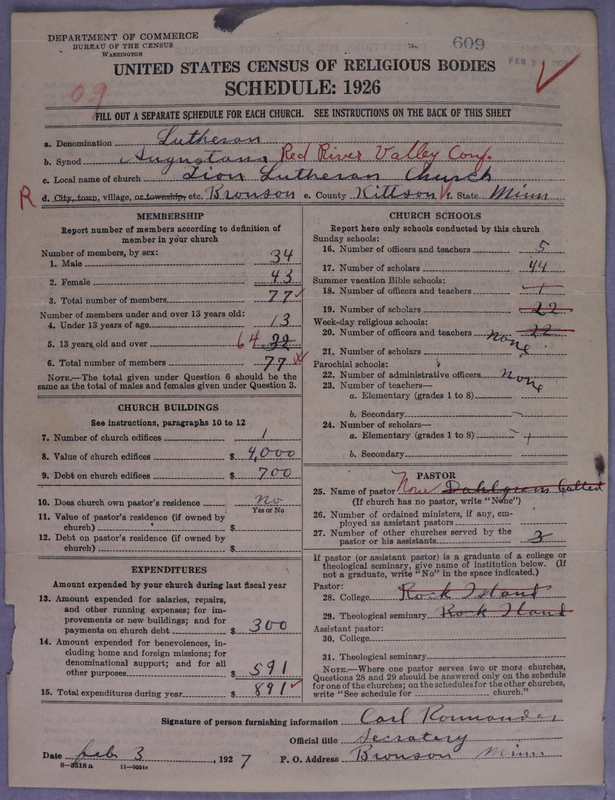 DEPARTMENT OF COMMERCE
BUREAU OF THE CENSUS
WASHINGTON
609
FEB
UNITED STATES CENSUS OF RELIGIOUS BODIES
SCHEDULE: 1926
09
FILL OUT A SEPARATE SCHEDULE FOR EACH CHURCH. SEE INSTRUCTIONS ON THE BACK OF THIS SHEET
a. Denomination Lutheran
b. Synod Augustana Red River Valley Conf.
c. Local name of church Zion Lutheran Church
R d. City, town, village, or township, etc. Bronson e. County Kittson f. State Minn
MEMBERSHIP
Report number of members according to definition of
member in your church
Number of members, by sex:
1. Male 34
2. Female 43
3. Total number of members 77
Number of members under and over 13 years old:
4. Under 13 years of age 13
5. 13 years old and over 64 32
6. Total number of members 77
NOTE.—The total given under Question 6 should be the
same as the total of males and females given under Question 3.
CHURCH BUILDINGS
See instructions, paragraphs 10 to 12
7. Number of church edifices 1
8. Value of church edifices $ 4,000
9. Debt on church edifices $ 700
10. Does church own pastor's residence No
Yes or No
11. Value of pastor's residence (if owned by
church) $
12. Debt on pastor's residence (if owned by
church) $
EXPENDITURES
Amount expended by your church during last fiscal year
13. Amount expended for salaries, repairs,
and other running expenses; for im-
provements or new buildings; and for
payments on church debt $ 300
14. Amount expended for benevolences, in-
cluding home and foreign missions; for
denominational support; and for all
other purposes $ 591
15. Total expenditures during year $ 891
CHURCH SCHOOLS
Report here only schools conducted by this church
Sunday schools:
16. Number of officers and teachers 5
17. Number of scholars 44
Summer vacation Bible schools:
18. Number of officers and teachers 1
19. Number of scholars 22
Week-day religious schools:
20. Number of officers and teachers 22
none
21. Number of scholars
Parochial schools:
22. Number of administrative officers none
23. Number of teachers—
a. Elementary (grades 1 to 8)
b. Secondary
24. Number of scholars—
a. Elementary (grades 1 to 8)
b. Secondary
PASTOR
25. Name of pastor None Dahlgren
(If church has no pastor, write "None")
26. Number of ordained ministers, if any, em-
ployed as assistant pastors
27. Number of other churches served by the
pastor or his assistants 3
If pastor (or assistant pastor) is a graduate of a college or
theological seminary, give name of institution below. (If
not a graduate, write "No" in the space indicated.)
Pastor:
28. College Rock Island
29. Theological seminary Rock Iland
Assistant pastor:
30. College
31. Theological seminary
NOTE.—Where one pastor serves two or more churches,
Questions 28 and 29 should be answered only on the schedule
for one of the churches; on the schedules for the other churches,
write "See schedule for church."
Signature of person furnishing information Carl
Official title Secretary
Date feb 3, 1927 P. O. Address Bronson Minn